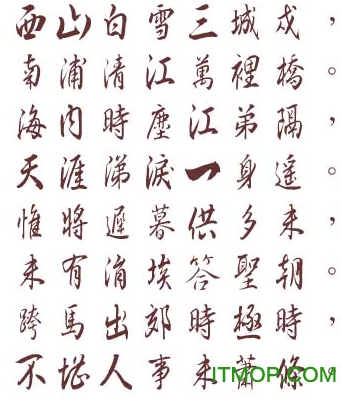 西山白雪三城戍，
南浦清江萬裡橋。
海內時塵江弟隔，
天涯涕淚一身遙。
惟將遲暮供多未，
未有涓埃答聖朝。
跨馬出郊時極時，
不堪人事未蕭條。
ITMOP.COM